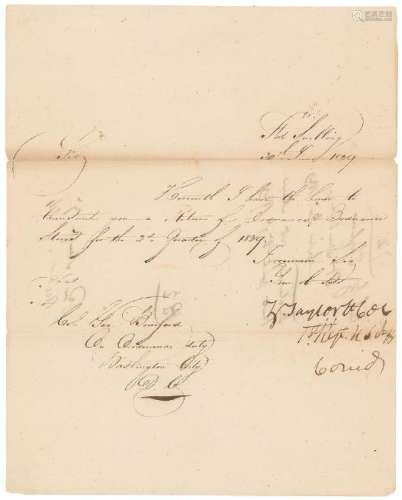 Fort Snelling
30th June 1829
Sir,
Herewith I have the honor to
transmit you a Return of Ordnance & Ordnance
Stores for the 2d Quarter of 1829.
I remain Sir
Z. Taylor Lt Col
1st Regt U S Infy
Comdg
Col. Geo. Bomford
On Ordnance duty
Washington City
D. C.